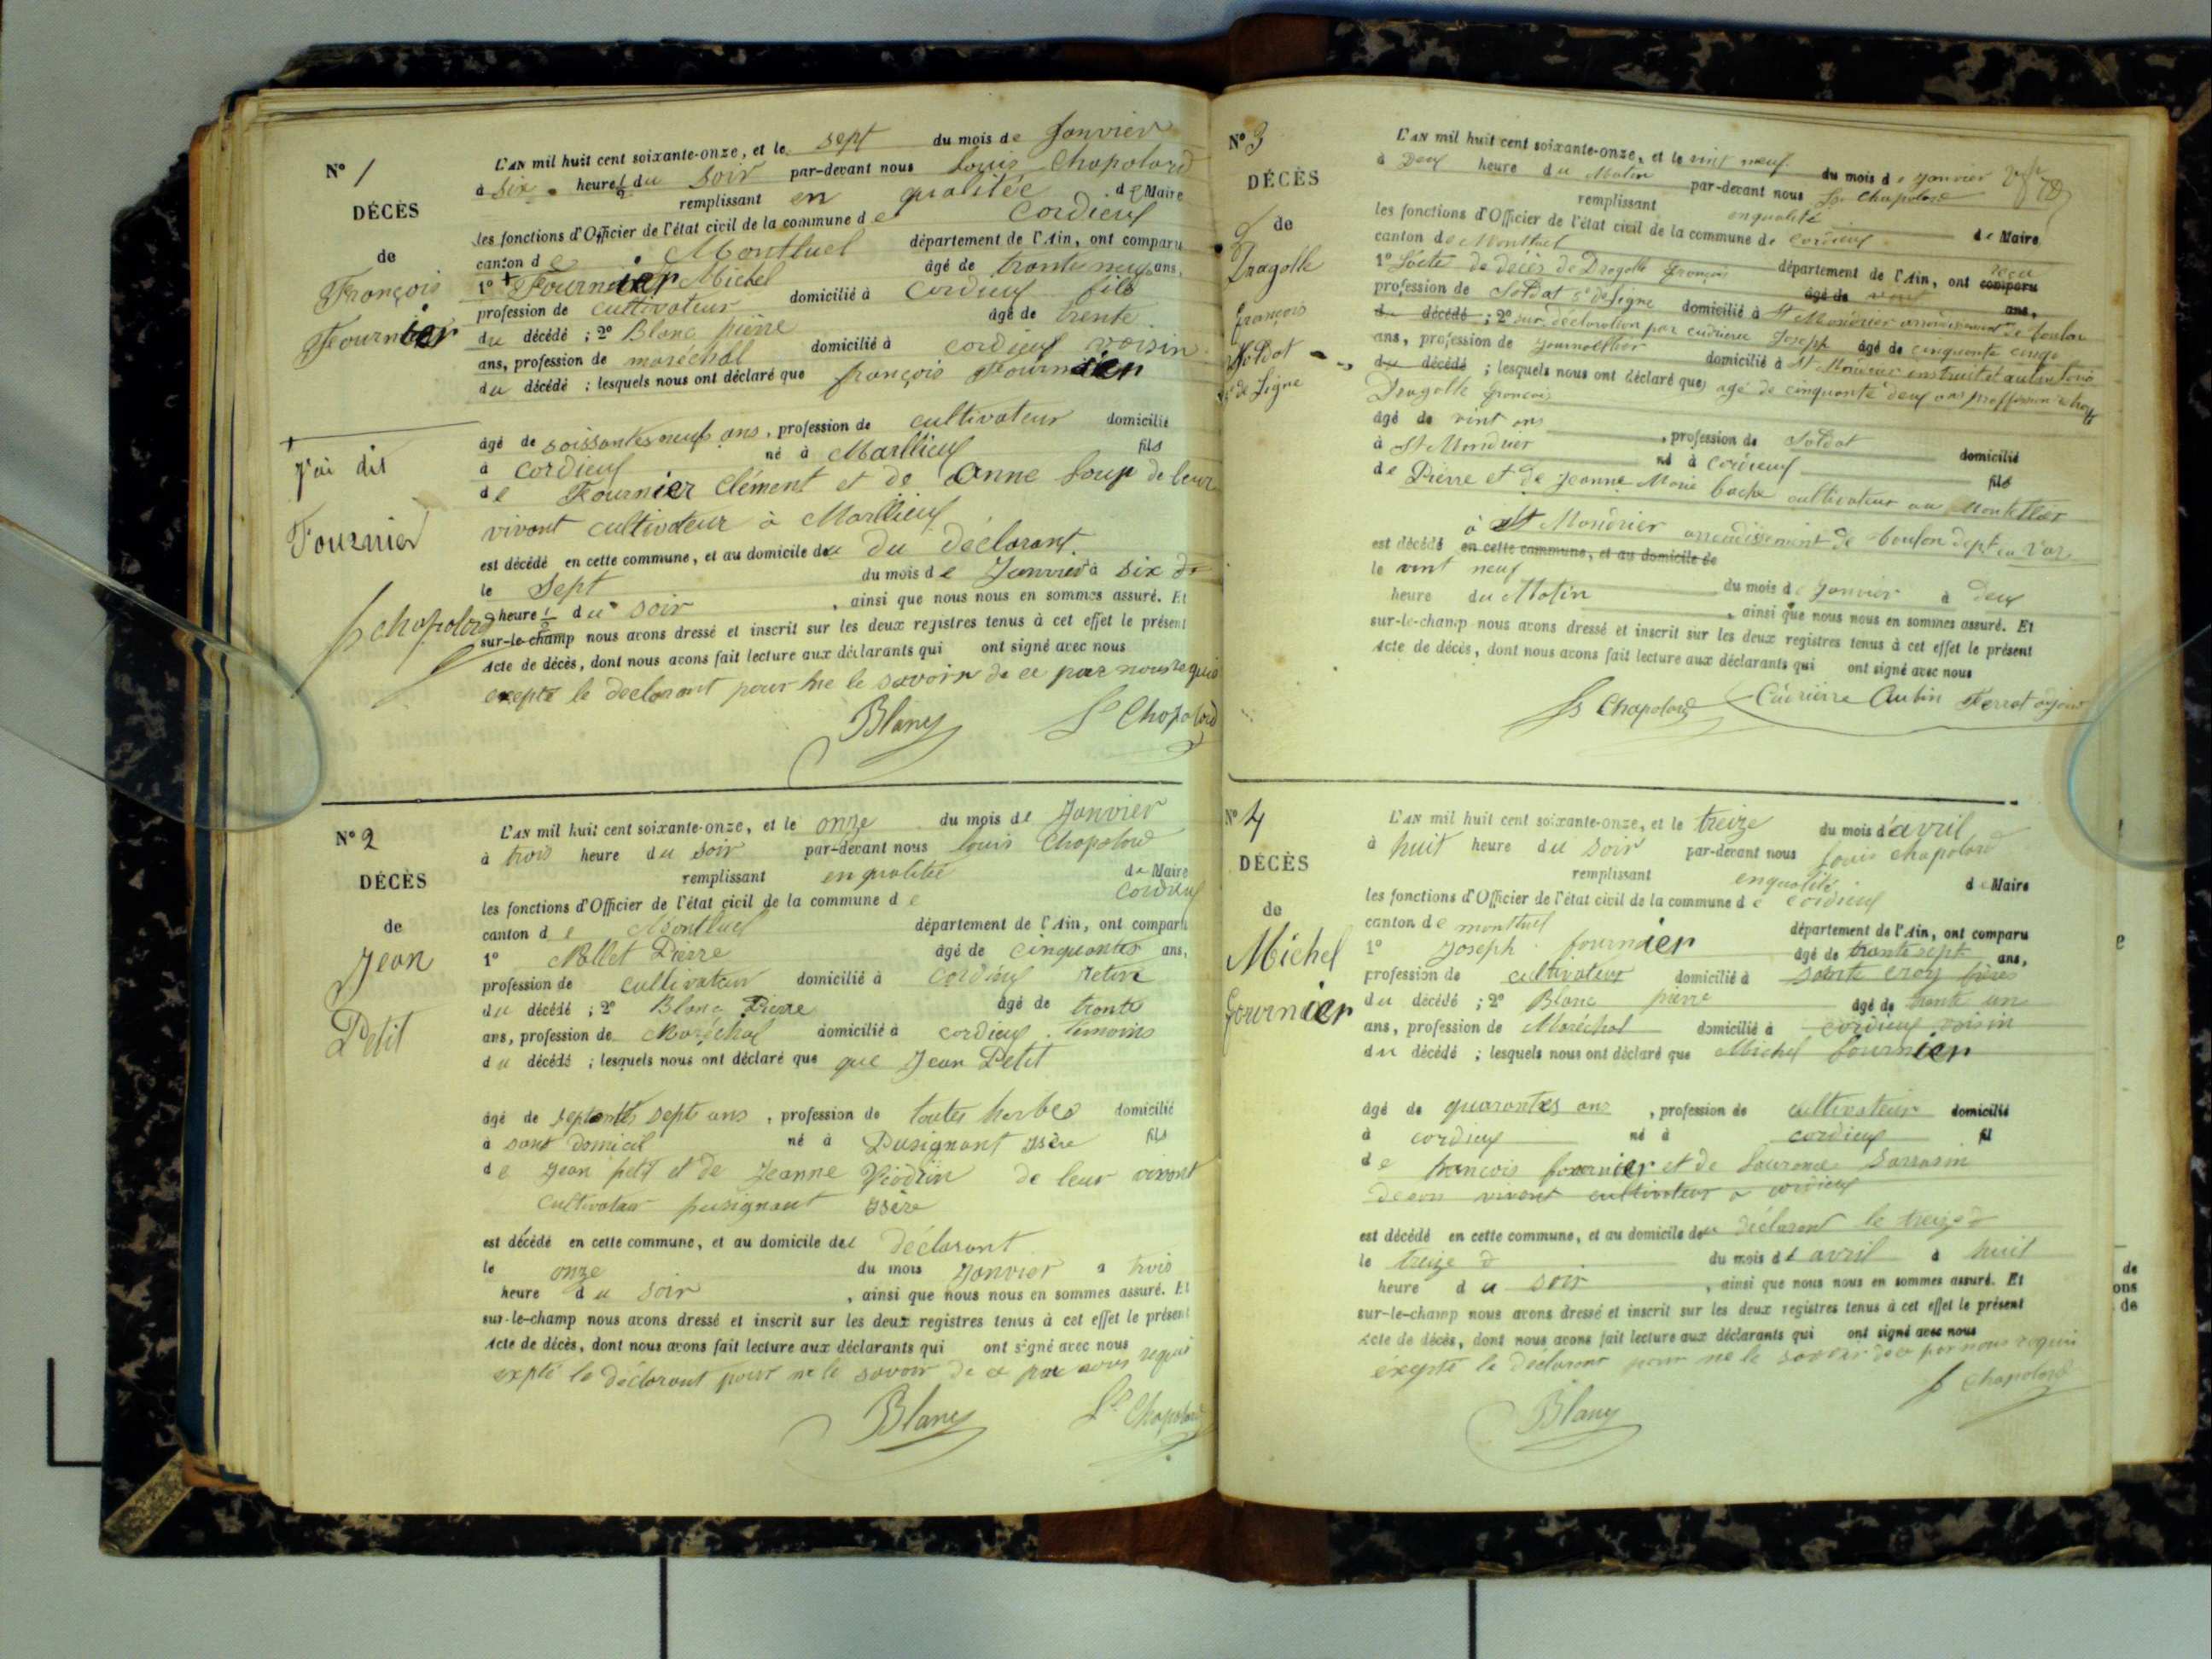 N° 1
DÉCÈS
de
François
Fournier
L'AN mil huit cent soixante-onze, et le sept du mois de Janvier
à six heure ½ du soir par-devant nous Louis Chapolard
remplissant en qualitée de Maire
les fonctions d'Officier de l'état civil de la commune de Cordieux
canton de Montluel département de l'Ain, ont comparu
1° Fournier Michel âgé de trente neuf ans,
profession de cultivateur domicilié à Cordieux fils
du décédé ; 2° Blanc pierre âgé de trente
ans, profession de maréchal domicilié à cordieux voisin
du décédé ; lesquels nous ont déclaré que françois Fournier
âgé de soissantes neuf ans, profession de cultivateur domicilié
à cordieux né à Marllieux fils
de Fournier Clément et de Anne Loup de leur
vivant cultivateur à Marllieux
est décédé en cette commune, et au domicile du du déclarant.
le Sept du mois de Janvier à six
heure ½ du soir , ainsi que nous nous en sommes assuré. Et
sur-le-champ nous avons dressé et inscrit sur les deux registres tenus à cet effet le présent
Acte de décès, dont nous avons fait lecture aux déclarants qui ont signé avec nous
exepté le declarant pour ne le savoir de ce par nous requis
Blanc Ls Chapolard
J'ai dit
Fournier
Ls Chapolard
N° 2
DÉCÈS
de
Jean
Petit
L'AN mil huit cent soixante-onze, et le onze du mois de Janvier
à trois heure du soir par-devant nous louis Chapolard
remplissant en qualitée de Maire
les fonctions d'Officier de l'état civil de la commune de Cordieux
canton de Montluel département de l'Ain, ont comparu
1° Mollet Pierre âgé de cinquantes ans,
profession de cultivateur domicilié à cordieux
du décédé ; 2° Blanc Pierre âgé de trente
ans, profession de Maréchal domicilié à cordieux temoins
du décédé ; lesquels nous ont déclaré que que Jean Petit
âgé de septantes septs ans , profession de toutes herbes domicilié
à sans domicil né à Pusignant Isère fils
de Jean petit et de Jeanne de leur vivant
cultivateur pusignant Isère
est décédé en cette commune, et au domicile del déclarant
le onze du mois Janvier a trois
heure du soir , ainsi que nous nous en sommes assuré. Et
sur-le-champ nous avons dressé et inscrit sur les deux registres tenus à cet effet le présent
Acte de décès, dont nous avons fait lecture aux déclarants qui ont signé avec nous
expté le déclarant pour ne le savoir de ce par nous requis
Blanc Ls Chapolard
N° 3
DÉCÈS
de
Dragolle
françois
Soldat
de Ligne
L'AN mil huit cent soixante-onze, et le vint neuf du mois de Janvier
à Deux heure du Matin par-devant nous Ls Chapolard
remplissant en qualité de Maire
les fonctions d'Officier de l'état civil de la commune de Cordieux
canton de Montluel département de l'Ain, ont comparu reçu
1° L'acte de décès de Dragolle françois âgé de vint ans,
profession de Soldat de ligne domicilié à St Mondrier arrondissement de toulon
du décédé ; 2° sur déclaration par cudrierre Joseph âgé de cinquante cinq
ans, profession de journallier domicilié à St Mondrier
du décédé ; lesquels nous ont déclaré que agé de cinquante deux ans
Dragolle françois
âgé de vint ans , profession de Soldat domicilié
à St Mondrier né à Cordieux fils
de Pierre et de Jeanne Marie cultivateur au Montellier
à St Mondrier arrondissement de toulon dept du Var
est décédé en cette commune, et au domicile de
le vint neuf du mois de Janvier à deux
heure du Matin , ainsi que nous nous en sommes assuré. Et
sur-le-champ nous avons dressé et inscrit sur les deux registres tenus à cet effet le présent
Acte de décès, dont nous avons fait lecture aux déclarants qui ont signé avec nous
Ls Chapolard Cudrierre Aubin Ferrat
N° 4
DÉCÈS
de
Michel
fournier
L'AN mil huit cent soixante-onze, et le treize du mois d'avril
à huit heure du soir par-devant nous Louis chapolard
remplissant en qualité de Maire
les fonctions d'Officier de l'état civil de la commune de cordieux
canton de montluel département de l'Ain, ont comparu
1° Joseph fournier âgé de trente sept ans,
profession de cultivateur domicilié à sainte croix frères
du décédé ; 2° Blanc pierre âgé de trente un
ans, profession de Maréchal domicilié à cordieux voisin
du décédé ; lesquels nous ont déclaré que Michel fournier
âgé de quarantes ans , profession de cultivateur domicilié
à cordieux né à cordieux fil
de francois fournier et de Laurence Sarrasin
de son vivant cultivateur a cordieux
est décédé en cette commune, et au domicile du déclarant le treize
le treize du mois de avril à huit
heure du soir , ainsi que nous nous en sommes assuré. Et
sur-le-champ nous avons dressé et inscrit sur les deux registres tenus à cet effet le présent
Acte de décès, dont nous avons fait lecture aux déclarants qui ont signé avec nous
éxepté le declarant pour ne le savoir de ce par nous requis
Blanc Ls Chapolard
e
de
ons
de